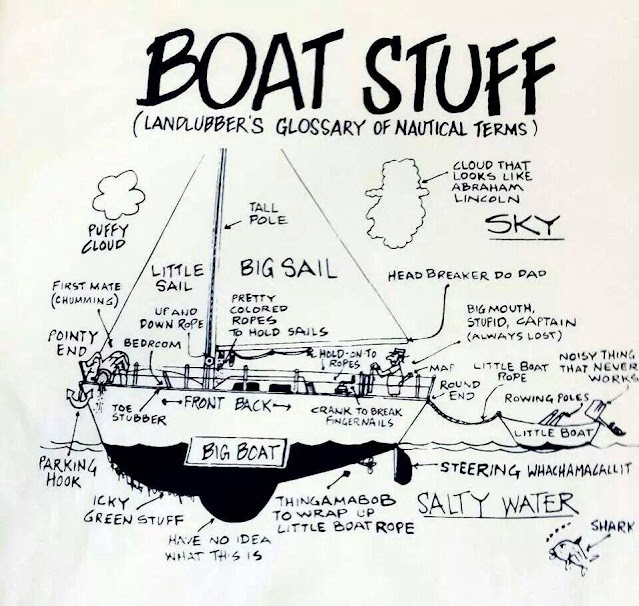 BOAT STUFF
(LANDLUBBER'S GLOSSARY OF NAUTICAL TERMS)
CLOUD THAT
LOOKS LIKE
ABRAHAM
LINCOLN
SKY
TALL
POLE
PUFFY
CLOUD
LITTLE
SAIL
BIG SAIL
HEAD BREAKER DO DAD
FIRST MATE
(CHUMMING)
UP AND
DOWN ROPE
PRETTY
COLORED
ROPES
TO HOLD SAILS
BIG MOUTH,
STUPID, CAPTAIN
(ALWAYS LOST)
POINTY
END
BEDROOM
HOLD-ON-TO
ROPES
MAP
LITTLE BOAT
ROPE
NOISY THING
THAT NEVER
WORKS
ROUND
END
ROWING POLES
TOE
STUBBER
FRONT BACK
CRANK TO BREAK
FINGERNAILS
LITTLE BOAT
BIG BOAT
PARKING
HOOK
STEERING WHACHAMACALLIT
ICKY
GREEN STUFF
THINGAMABOB
TO WRAP UP
LITTLE BOAT ROPE
SALTY WATER
HAVE NO IDEA
WHAT THIS IS
SHARK